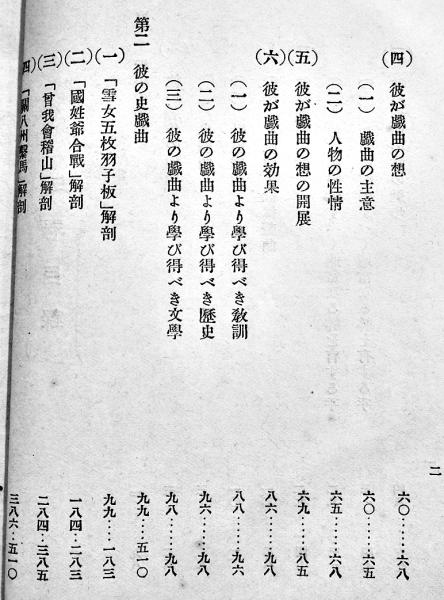 二
(四) 彼が戯曲の想 六〇……六八
(一) 戯曲の主意 六〇……六五
(二) 人物の性情 六五……六八
(五) 彼が戯曲の想の開展 六九……八五
(六) 彼が戯曲の効果 八六……九八
(一) 彼の戯曲より學び得べき教訓 八八……九六
(二) 彼の戯曲より學び得べき歷史 九六……九八
(三) 彼の戯曲より學び得べき文學 九八……九八
第二 彼の史戯曲 九九…五一〇
(一) 「雪女五枚羽子板」解剖 九九…一八三
(二) 「國姓爺合戰」解剖 一八四…二八三
(三) 「曾我會稽山」解剖 二八四…三八五
(四) 「關八州繫馬」解剖 三八六…五一〇